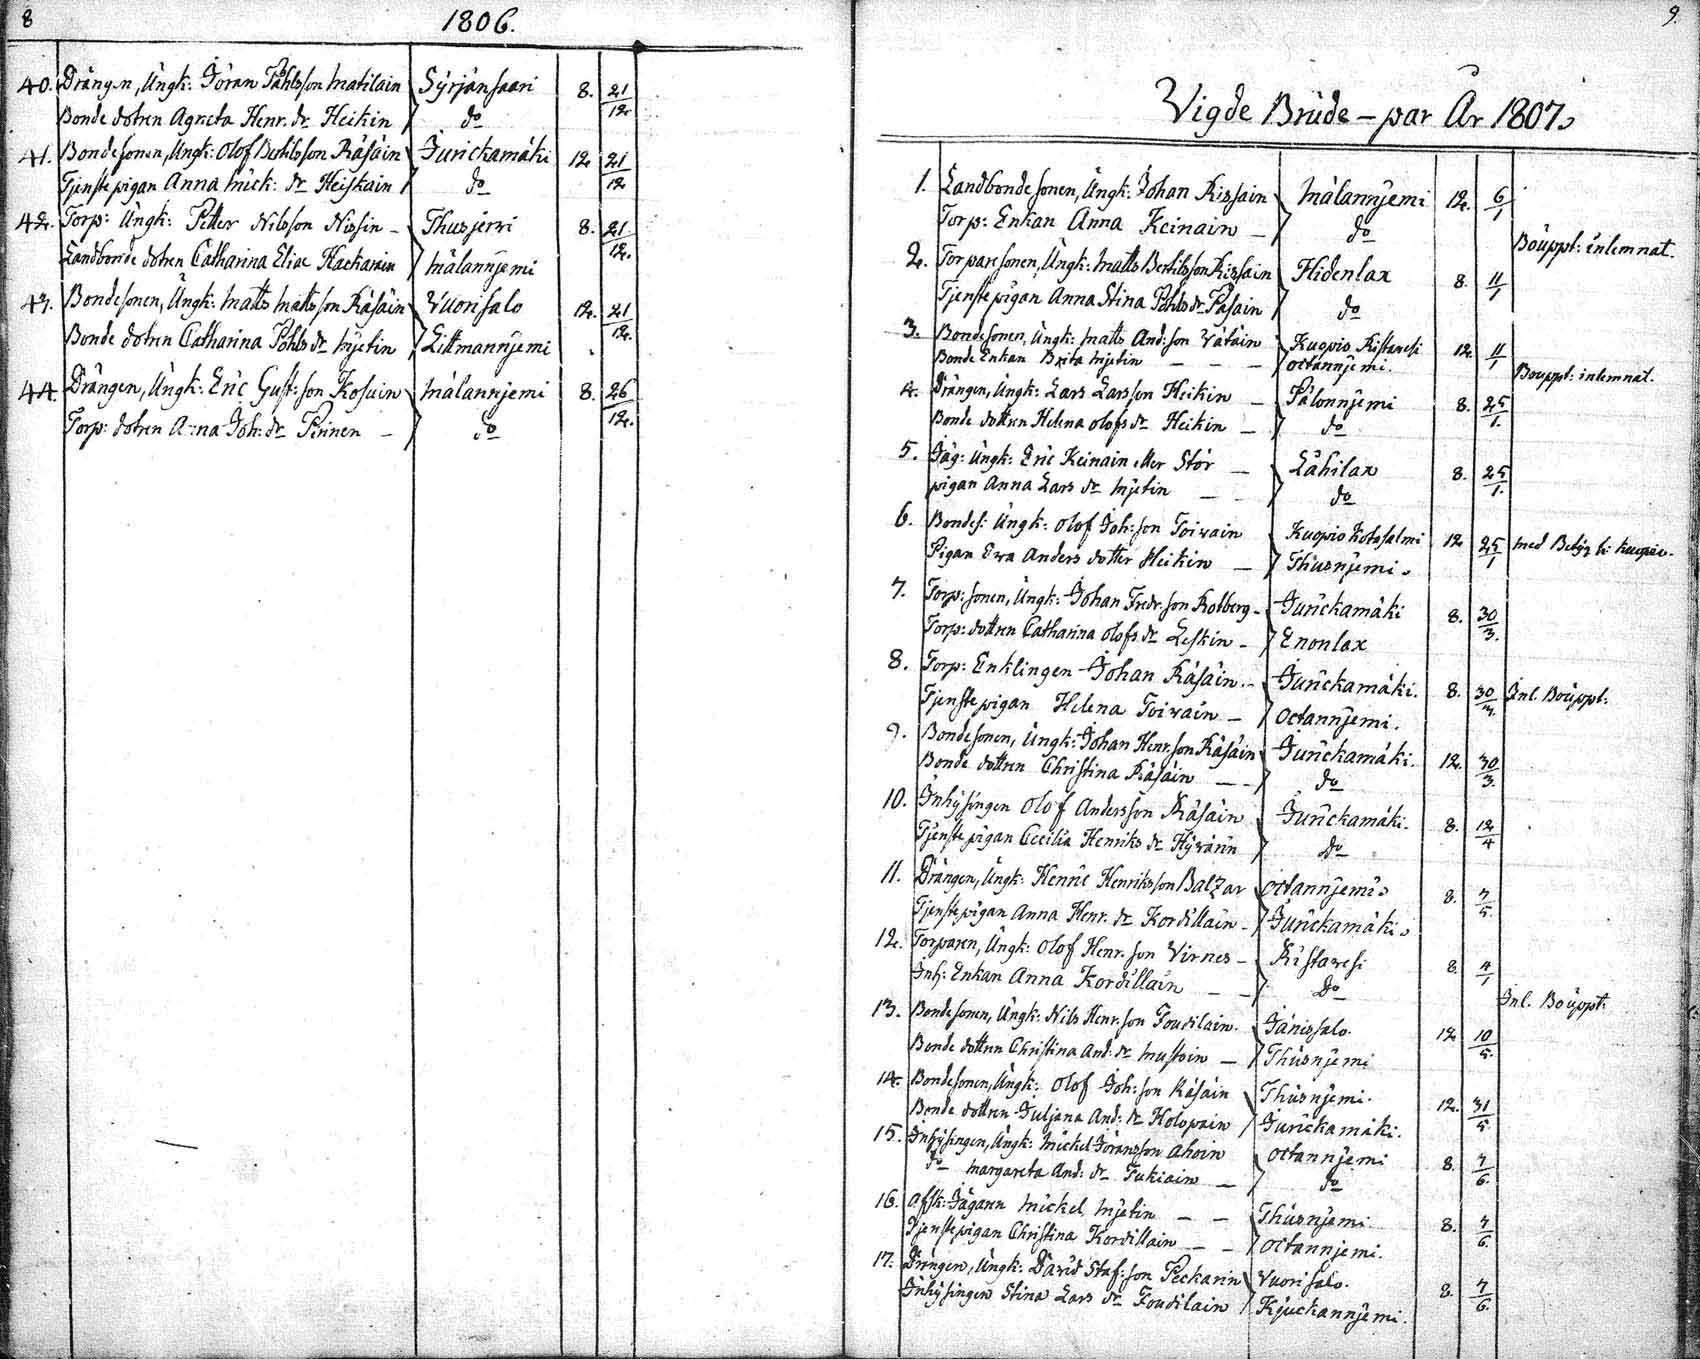 8
1806.
40. Drängen, Ungk: Jöran Påhlsson Matilain Syrjänsaari 8. 21/12
Bonde dotren Agneta Henr. dr Heikin do
41. Bondesonen, Ungk: Olof Bertilsson Räsäin Jurickamäki 12 21/12
Tjenstepigan Anna Mick: dr Heiskain do
42. Torp: Ungk: Petter Nilsson Nissin - Thusjerwi 8. 21/12.
Landbonde dotren Catharina Eliae Hackarain Målannjemi
43. Bondesonen, Ungk: Matts Mattsson Räsäin Vuorisalo 12. 21/12.
Bonde dotren Catharina Påhls dr Mjetin Littmannjemi
44. Drängen, Ungk: Eric Gust: son Kosuin Målannjemi 8. 26/12.
Torp: dotren Anna Joh: dr Pirinen - do
9.
Vigde Brude-par År 1807.
1. Landbonde sonen, Ungk: Johan Rissain Målannjemi 12. 6/1
Torp: Enkan Anna Keinain - do Bouppt: inlemnat.
2. Torparesonen, Ungk: Matts Bertilsson Rissain Hidenlax 8. 11/1
Tjenstepigan Anna Stina Påhls dr Pasain do
3. Bondesonen, Ungk: Matts And: son Vätäin Kuopio Ristavesi 12. 11/1
Bonde Enkan Brita Mjetin - - - octannjemi. Bouppt: inlemnat.
4. Drängen, Ungk: Lars Larsson Heikin - Pålonnjemi 8. 25/1.
Bonde dottren Helena Olofs dr Heikin - do
5. Jäg: Ungk: Eric Keinain eller Stör - Lähilax 8. 25/1.
pigan Anna Lars dr Mjetin - - do
6. Bondes: Ungk: Olof Joh: son Toiwain Kuopio Kotasalmi 12 25/1 med Betyg fr: Kuopio.
Pigan Ewa Anders dotter Heikin - Thusnjemi.
7. Torp: sonen, Ungk: Johan Fredr: son Rotberg - Jurickamäki 8. 30/3.
Torp: dottren Catharina Olofs dr Leskin - Enonlax
8. Torp: Enklingen Johan Räsäin. - Jurickamäki. 8. 30/3. Inl. Bouppt:
Tjenstepigan Helena Toiwain - octannjemi.
9. Bondesonen, Ungk: Johan Henr. son Räsäin Jurickamäki. 12. 30/3.
Bonde dottren Christina Räsäin - - do
10. Inhysingen Olof Andersson Räsäin Jurickamäki. 8. 12/4
Tjenstepigan Cecilia Henriks dr Hyvärin Do
11. Drängen, Ungk: Henric Henriksson Balzar octannjemi. 8. 7/5.
Tjenstepigan Anna Henr. dr Kordillain - Jurickamäki.
12. Torparen, Ungk: Olof Henr. son Virnes - Ristavesi 8. 4/1
Inh: Enkan Anna Kordillain - - Do Inl. Bouppt:
13. Bondesonen, Ungk: Nils Henr. son Foudilain. Jänissalo. 12 10/5.
Bonde dottren Christina And: dr Mustoin - Thusnjemi
14. Bondesonen, Ungk: Olof Joh: son Räsäin Thusnjemi. 12. 31/5
Bonde dottren Juljana And: dr Holopain Jurickamäki.
15. Inhysingen, Ungk: Mickel Jöransson Ahoin octannjemi 8. 7/6.
do Margareta And: dr Tukiain - do
16. Afsk: Jägaren Mickel Mjetin - - Thusnjemi 8. 7/6.
Tjenstepigan Christina Kordillain - - octannjemi.
17. Drängen, Ungk: David Staf: son Peckarin Vuorisalo. 8. 7/6.
Inhysingen Stina Lars dr Foudilain Kjuckannjemi.